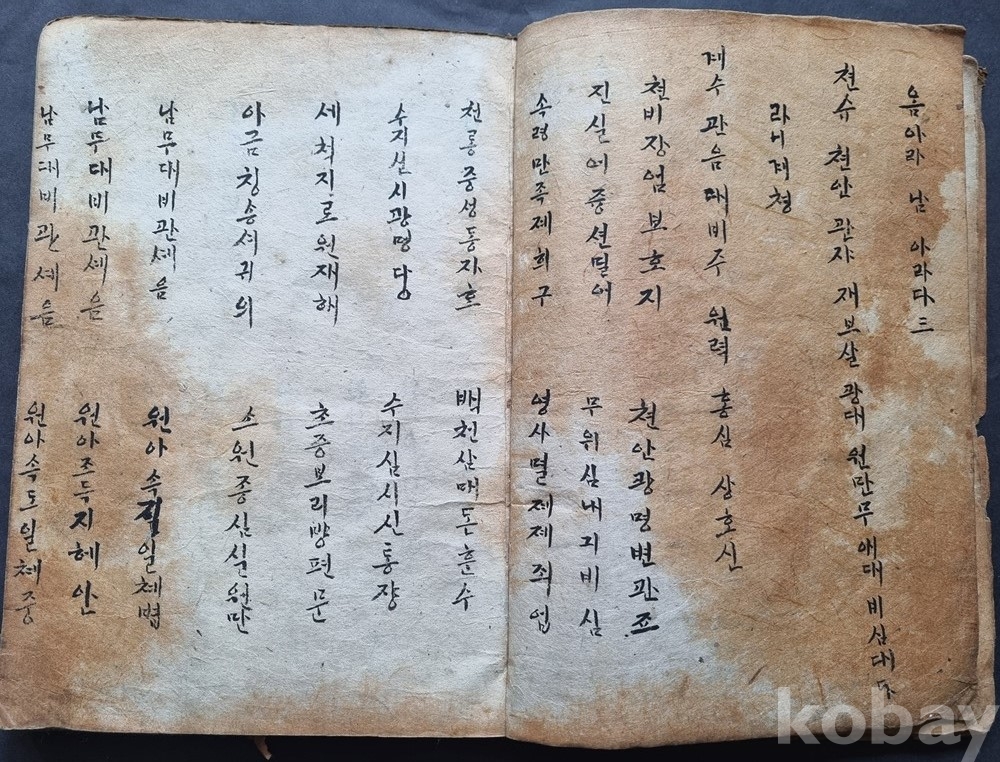 옴아라 남 아라다 三
쳔슈 쳔안 관쟈 재보살 광대 원만무 애대 비심대
계쳥
계수 관음 대비주 원력 홍심 상호신
쳔비장엄 보호지 쳔안광명변관죠
진실어중션밀어 무위심내긔비심
속령만족제희구 영사멸제제죄업
천룡중성동자호 백천삼매돈훈수
수지신시광명당 수지심시신통쟝
세척진로원재해 초증보리방편문
아금칭송셔귀의 소원종심실원만
남무대비관세음 원아속지일체볍
남무대비관세음 원아조득지혜안
남무대비관세음 원아속도일체중
kobay